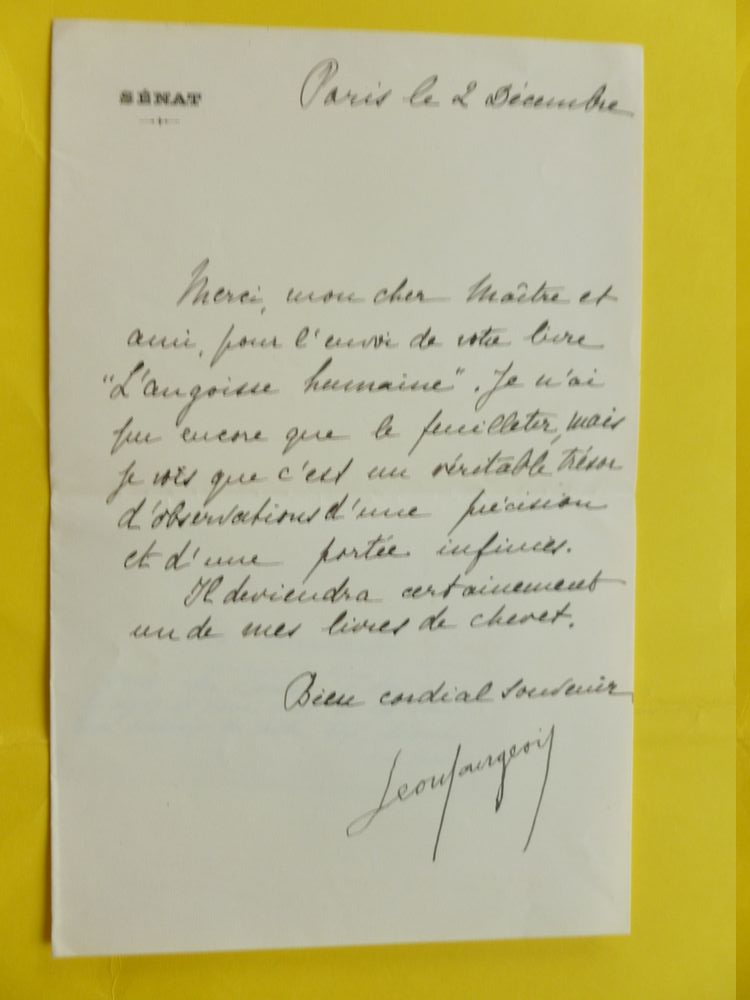 SÉNAT
Paris le 2 Décembre
Merci, mon cher Maître et
ami, pour l'envoi de votre livre
"L'angoisse humaine". Je n'ai
pu encore que le feuilleter, mais
je vois que c'est un véritable trésor
d'observations d'une précision
et d'une portée infinies.
Il deviendra certainement
un de mes livres de chevet.
Bien cordial souvenir
Leon Bourgeois